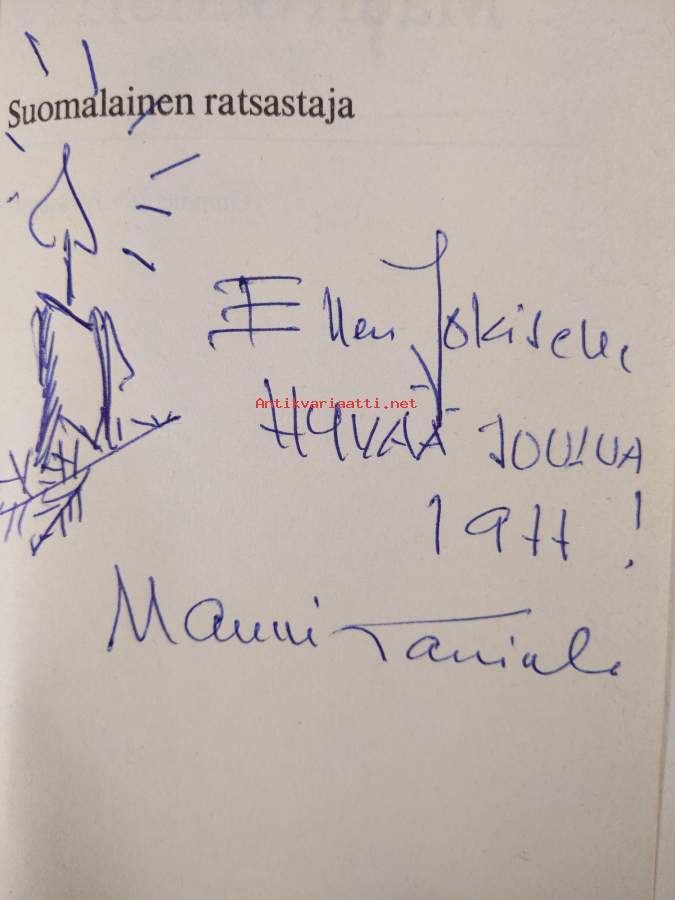 Suomalainen ratsastaja
Ellen Jokiselle
Antikvariaatti.net
HYVÄÄ JOULUA
1977!
Mauri